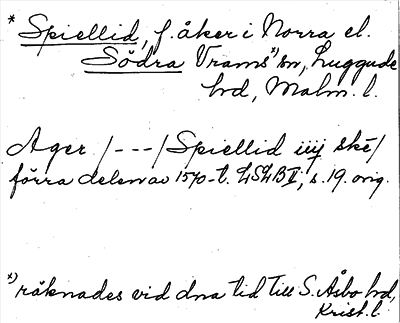 * Spiellid, f. åker i Norra el.
Södra Vrams *) sn, Luggude
hd, Malm. l.
Ager /---/ Spiellid iiij skē/
förra delen av 1570-t. LSLB II, s. 19. orig.
*) räknades vid dna tid till S. Åsbo hd,
Krist. l